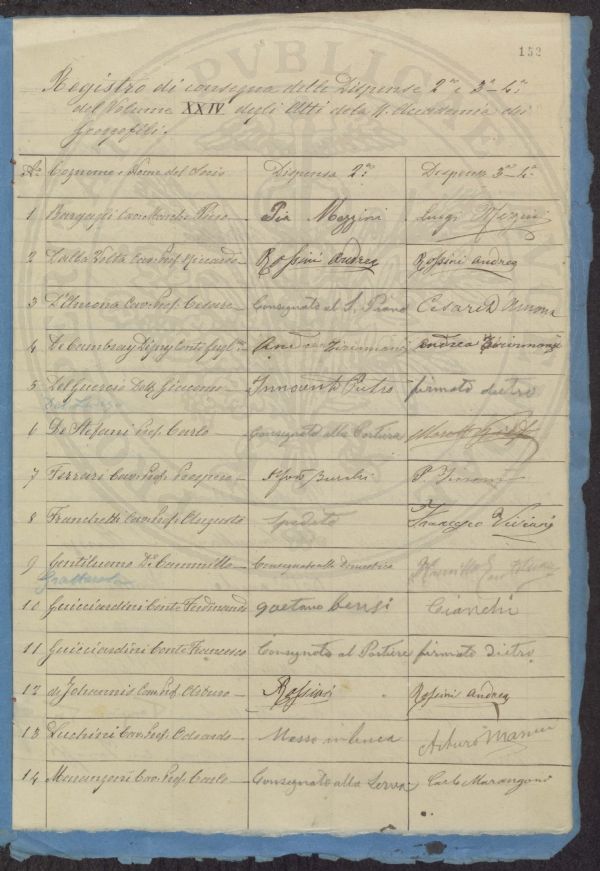 152
Registro di consegna delle Dispense 2ª e 3ª-4ª
del Volume XXIV degli Atti della R. Accademia dei
Georgofili.
Nº Cognome e Nome del Socio Dispensa 2ª Dispensa 3ª-4ª
1 Bargagli Cav. March. Piero Pia Mezzini Luigi Mezzini
2 Dalla Volta Cav. Prof. Riccardo Rossini Andrea Rossini Andrea
3 D'Ancona Cav. Prof. Cesare Consegnato al S. Piano Cesare D'Ancona
4 De Cambray Digny Conte Andrea
5 Del Guercio Dott. Giacomo Innocenti Pietro firmato dietro
6 De Stefani Prof. Carlo Consegnato alla Portiera
7 Ferrari Cav. Prof. Prospero P.
8 Franchetti Cav. Prof. Augusto Spedito Francesco Viviani
9 Gentiluomo Dr. Cammillo Consegnato alla Domestica
10 Guicciardini Conte Ferdinando Gaetano Censi Cianchi
11 Guicciardini Conte Francesco Consegnato al Portiere firmato dietro
12 de Johannis Cav. Prof. Arturo Rossini Rossini Andrea
13 Luchini Cav. Prof. Odoardo Messo in buca Arturo
14 Marangoni Cav. Prof. Carlo Consegnato alla Serva Carlo Marangoni